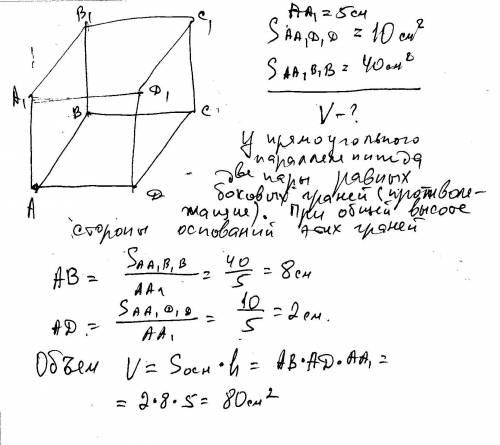 B₁
C₁
AA₁ = 5см
S AA₁D₁D = 10 см²
S AA₁B₁B = 40см²
A₁
D₁
B
C
V-?
A
D
У прямоугольного
параллелепипеда
две пары равных
боковых граней (противоле-
жащие). При общей высоте
стороны оснований этих граней
AB = S AA₁B₁B / AA₁ = 40/5 = 8см
AD = S AA₁D₁D / AA₁ = 10/5 = 2см.
Объем V = Sосн · h = AB·AD·AA₁ =
= 2·8·5 = 80см²